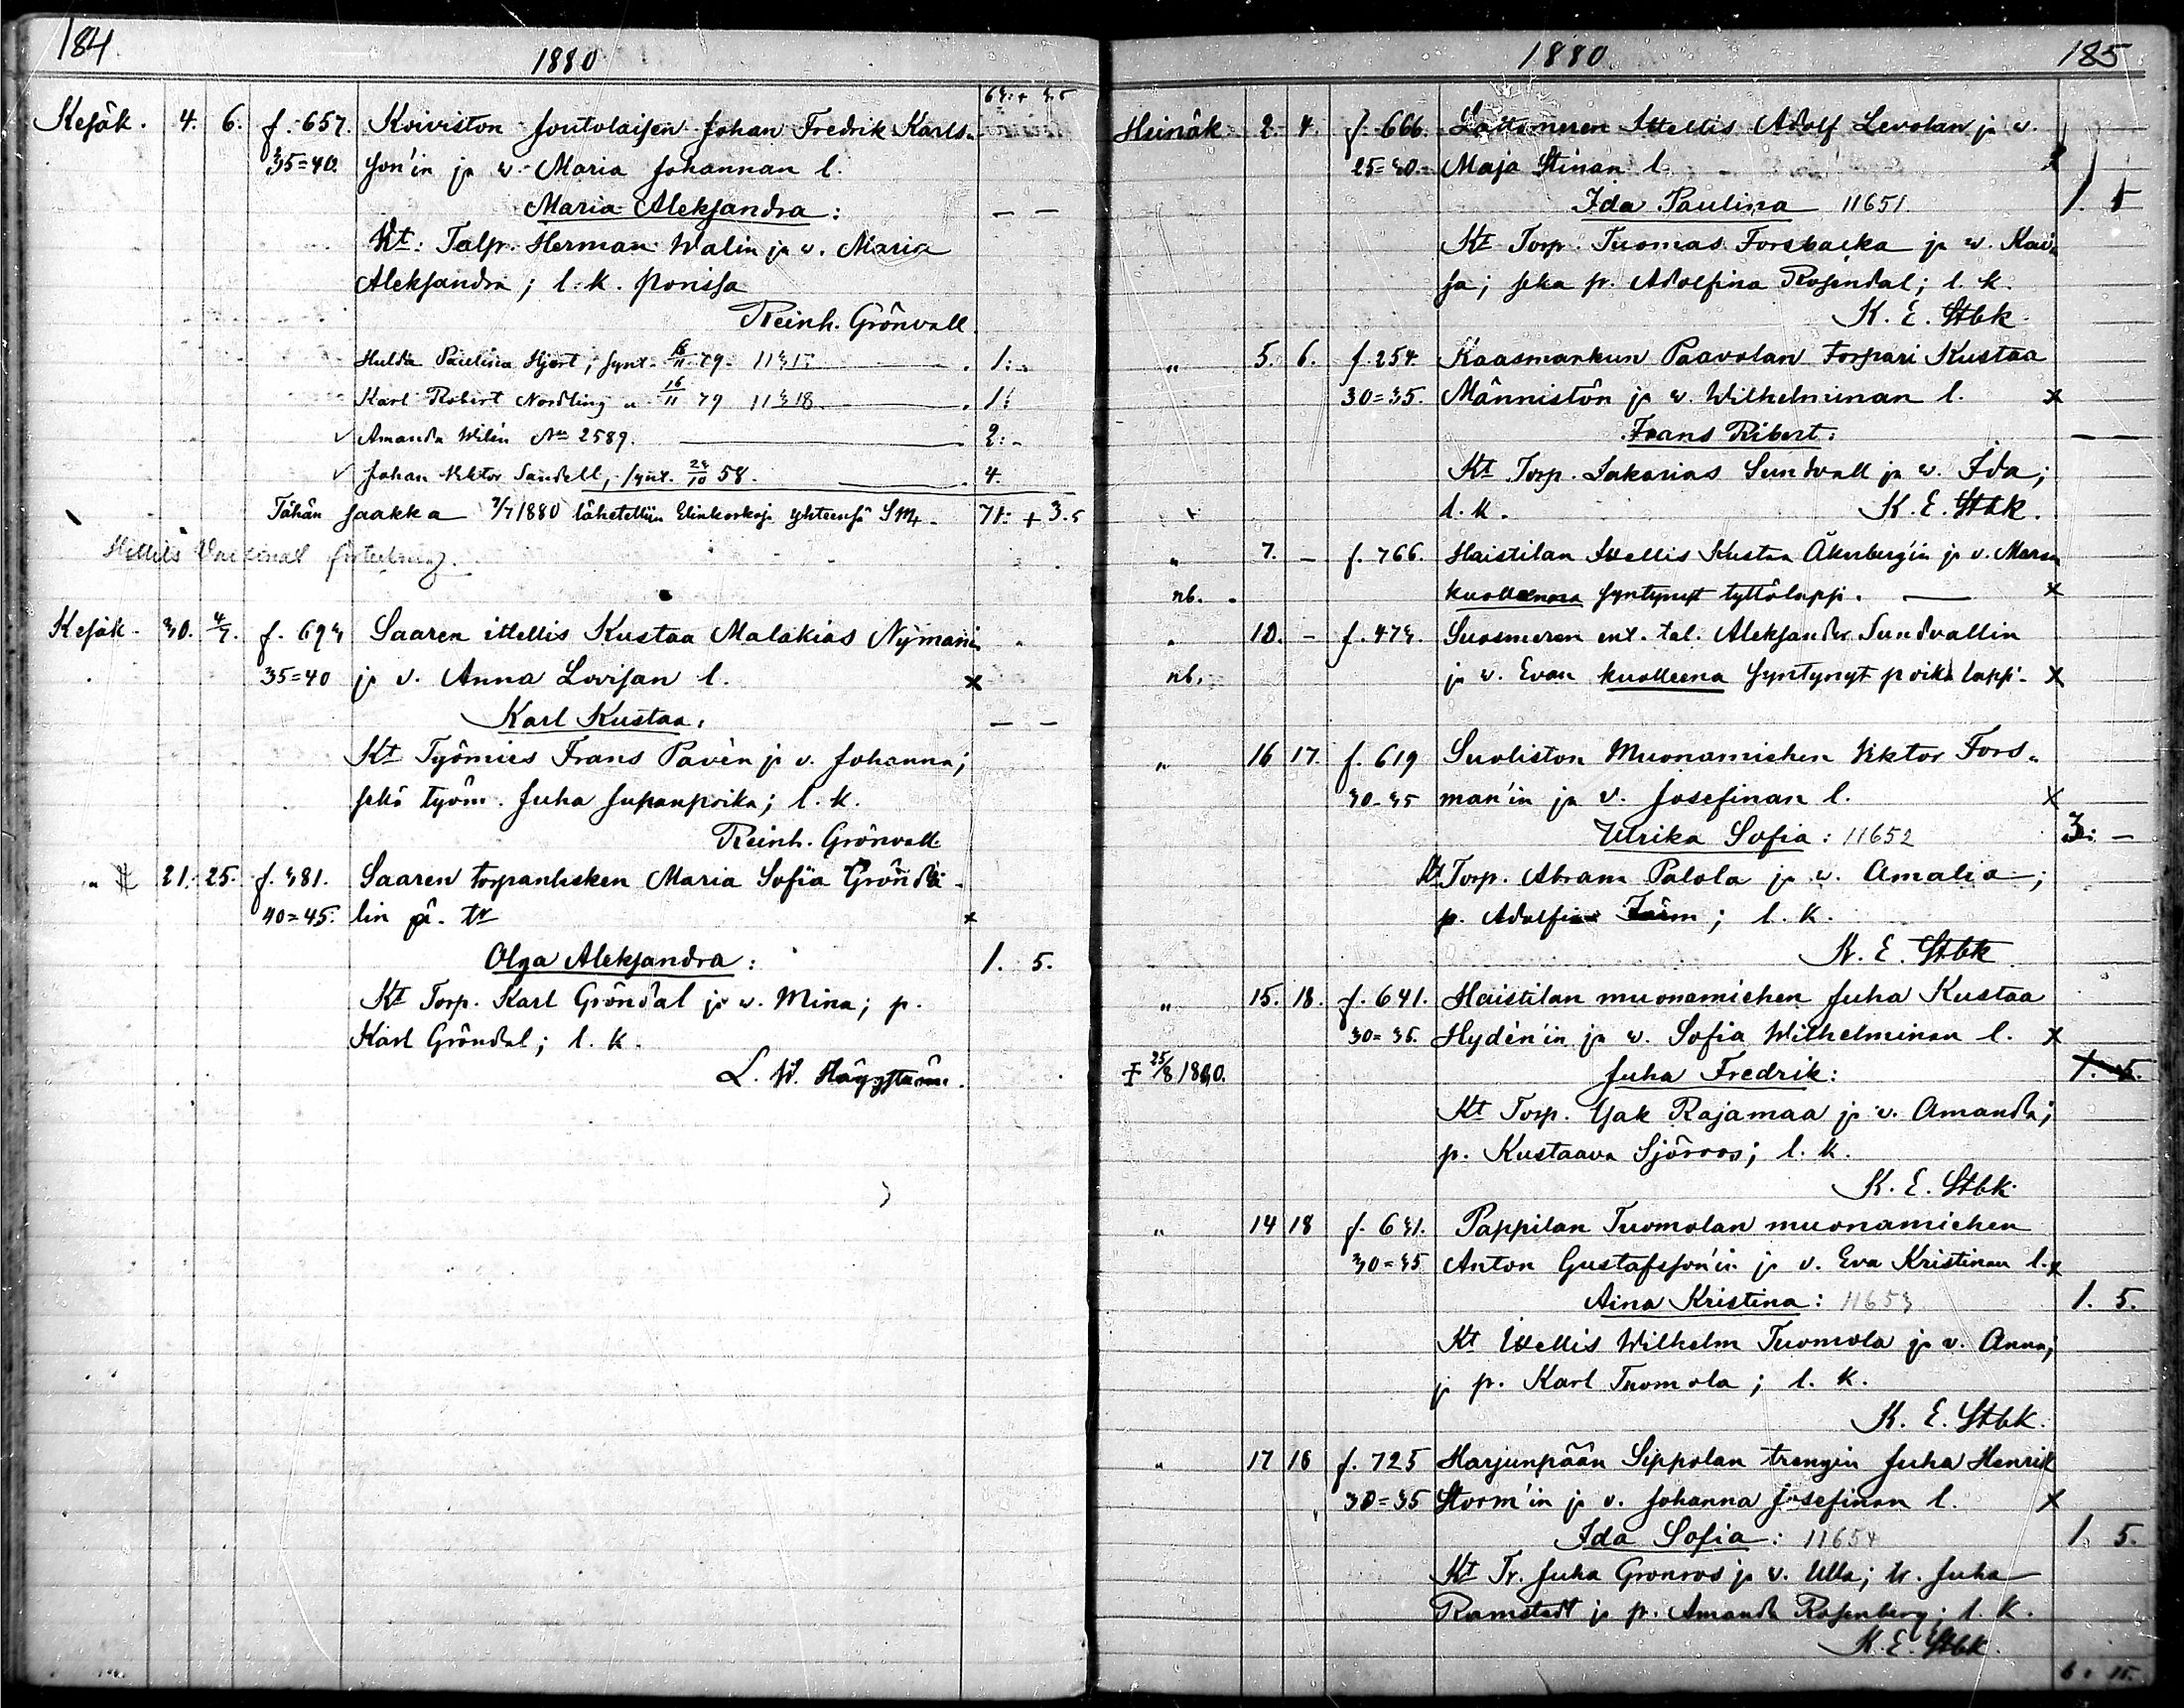 184.
1880
63:+ 35
Kesäk. 4. 6. f. 657. Koiviston Joutolaisen Johan Fredrik Karls-
35=40. son'in ja w. Maria Johannan l.
Maria Aleksandra: — —
Kt: Talp. Herman Walin ja v. Maria
Aleksandra; l. k. Porissa
Reinh. Grönvall
Hulda Paulina Hjort, synt. 79. 1:
Karl Robert Nordling " 16/11 79 11318 1:
✓ Amanda Wilén No 2589. 2:-
✓ Johan Viktor Sandell, synt. 24/10 58. 4.
Tähän saakka 7/7 1880 lähetettiin Elinkorkoja yhteensä Smk 71: + 3.5
Kesäk. 30. 4/7. f. 693 Saaren ittellis Kustaa Malakias Nymanin
35=40 ja v. Anna Lovisan l. x
Karl Kustaa. — —
Kt Työmies Frans Pavèn ja v. Johanna;
sekä työm. Juha Jupanpoika; l. k.
Reinh. Grönvall.
" 21. 25. f. 381. Saaren torpanlesken Maria Sofia Gröndä-
40=45. lin ä. tr x
Olga Aleksandra: 1. 5.
Kt Torp. Karl Gröndal ja w. Mina; p.
Karl Gröndal; l. k.
L. W. Häggström.
1880.
185
Heinäk. 2. 4. f. 666. Lattomeren Ittellis Adolf Levolan ja w.
25=30. Maja Stinan l. x
Ida Paulina 11651. 1. 5
Kt Torp. Tuomas Forsbacka ja w. Kai-
sa; seka p. Adolfina Rosendal; l. k.
K. E. Stbk.
" 5. 6. f. 254. Kaasmarkun Paavolan torpari Kustaa
30=35. Männistön ja w. Wilhelminan l. x
Frans Ribert: — —
Kt Torp. Sakarias Sundvall ja w. Ida;
l. k. K. E. Stbk.
" 7. — f. 766. Haistilan Ittellis Kustaa Åkerberg'in ja v. Marian
nb. kuolleena syntynyt tyttölapsi. — x
" 10. — f. 473. Suosmeren ent. tal. Aleksander Sundvallin
nb. ja w. Evan kuolleena syntynyt poika lapsi. x
" 16 17. f. 619 Suoliston Muonamiehen Viktor Fors-
30-35 man'in ja v. Josefinan l. x
Ulrika Sofia: 11652 3: —
Kt Torp. Abram Palola ja v. Amalia;
p. Adolfina; l. k.
K. E. Stbk
" 15. 18. f. 641. Haistilan muonamiehen Juha Kustaa
30=35. Hydén'in ja w. Sofia Wilhelminan l. x
‡ 25/8 1880. Juha Fredrik: 1. 5.
Kt Torp. Isak Rajamaa ja v. Amanda;
p. Kustaava Sjöroos; l. k.
K. E. Stbk.
" 14 18 f. 631. Pappilan Tuomolan muonamiehen
30=35 Anton Gustafsson'in ja v. Eva Kristinan l. x
Aina Kristina: 11653 1. 5.
Kt Ittellis Wilhelm Tuomola ja v. Anna;
ja p. Karl Tuomola; l. k.
K. E. Stbk.
" 17 18 f. 725 Harjunpään Sippolan trengin Juha Henrik
30=35 Storm'in ja v. Johanna Josefinan l. x
Ida Sofia: 11654 1. 5.
Kt Tr. Juha Gronros ja v. Ulla; tr. Juha
Ramstedt ja p. Amanda Rosenberg; l. k.
K. E. Stbk.
6. 15.